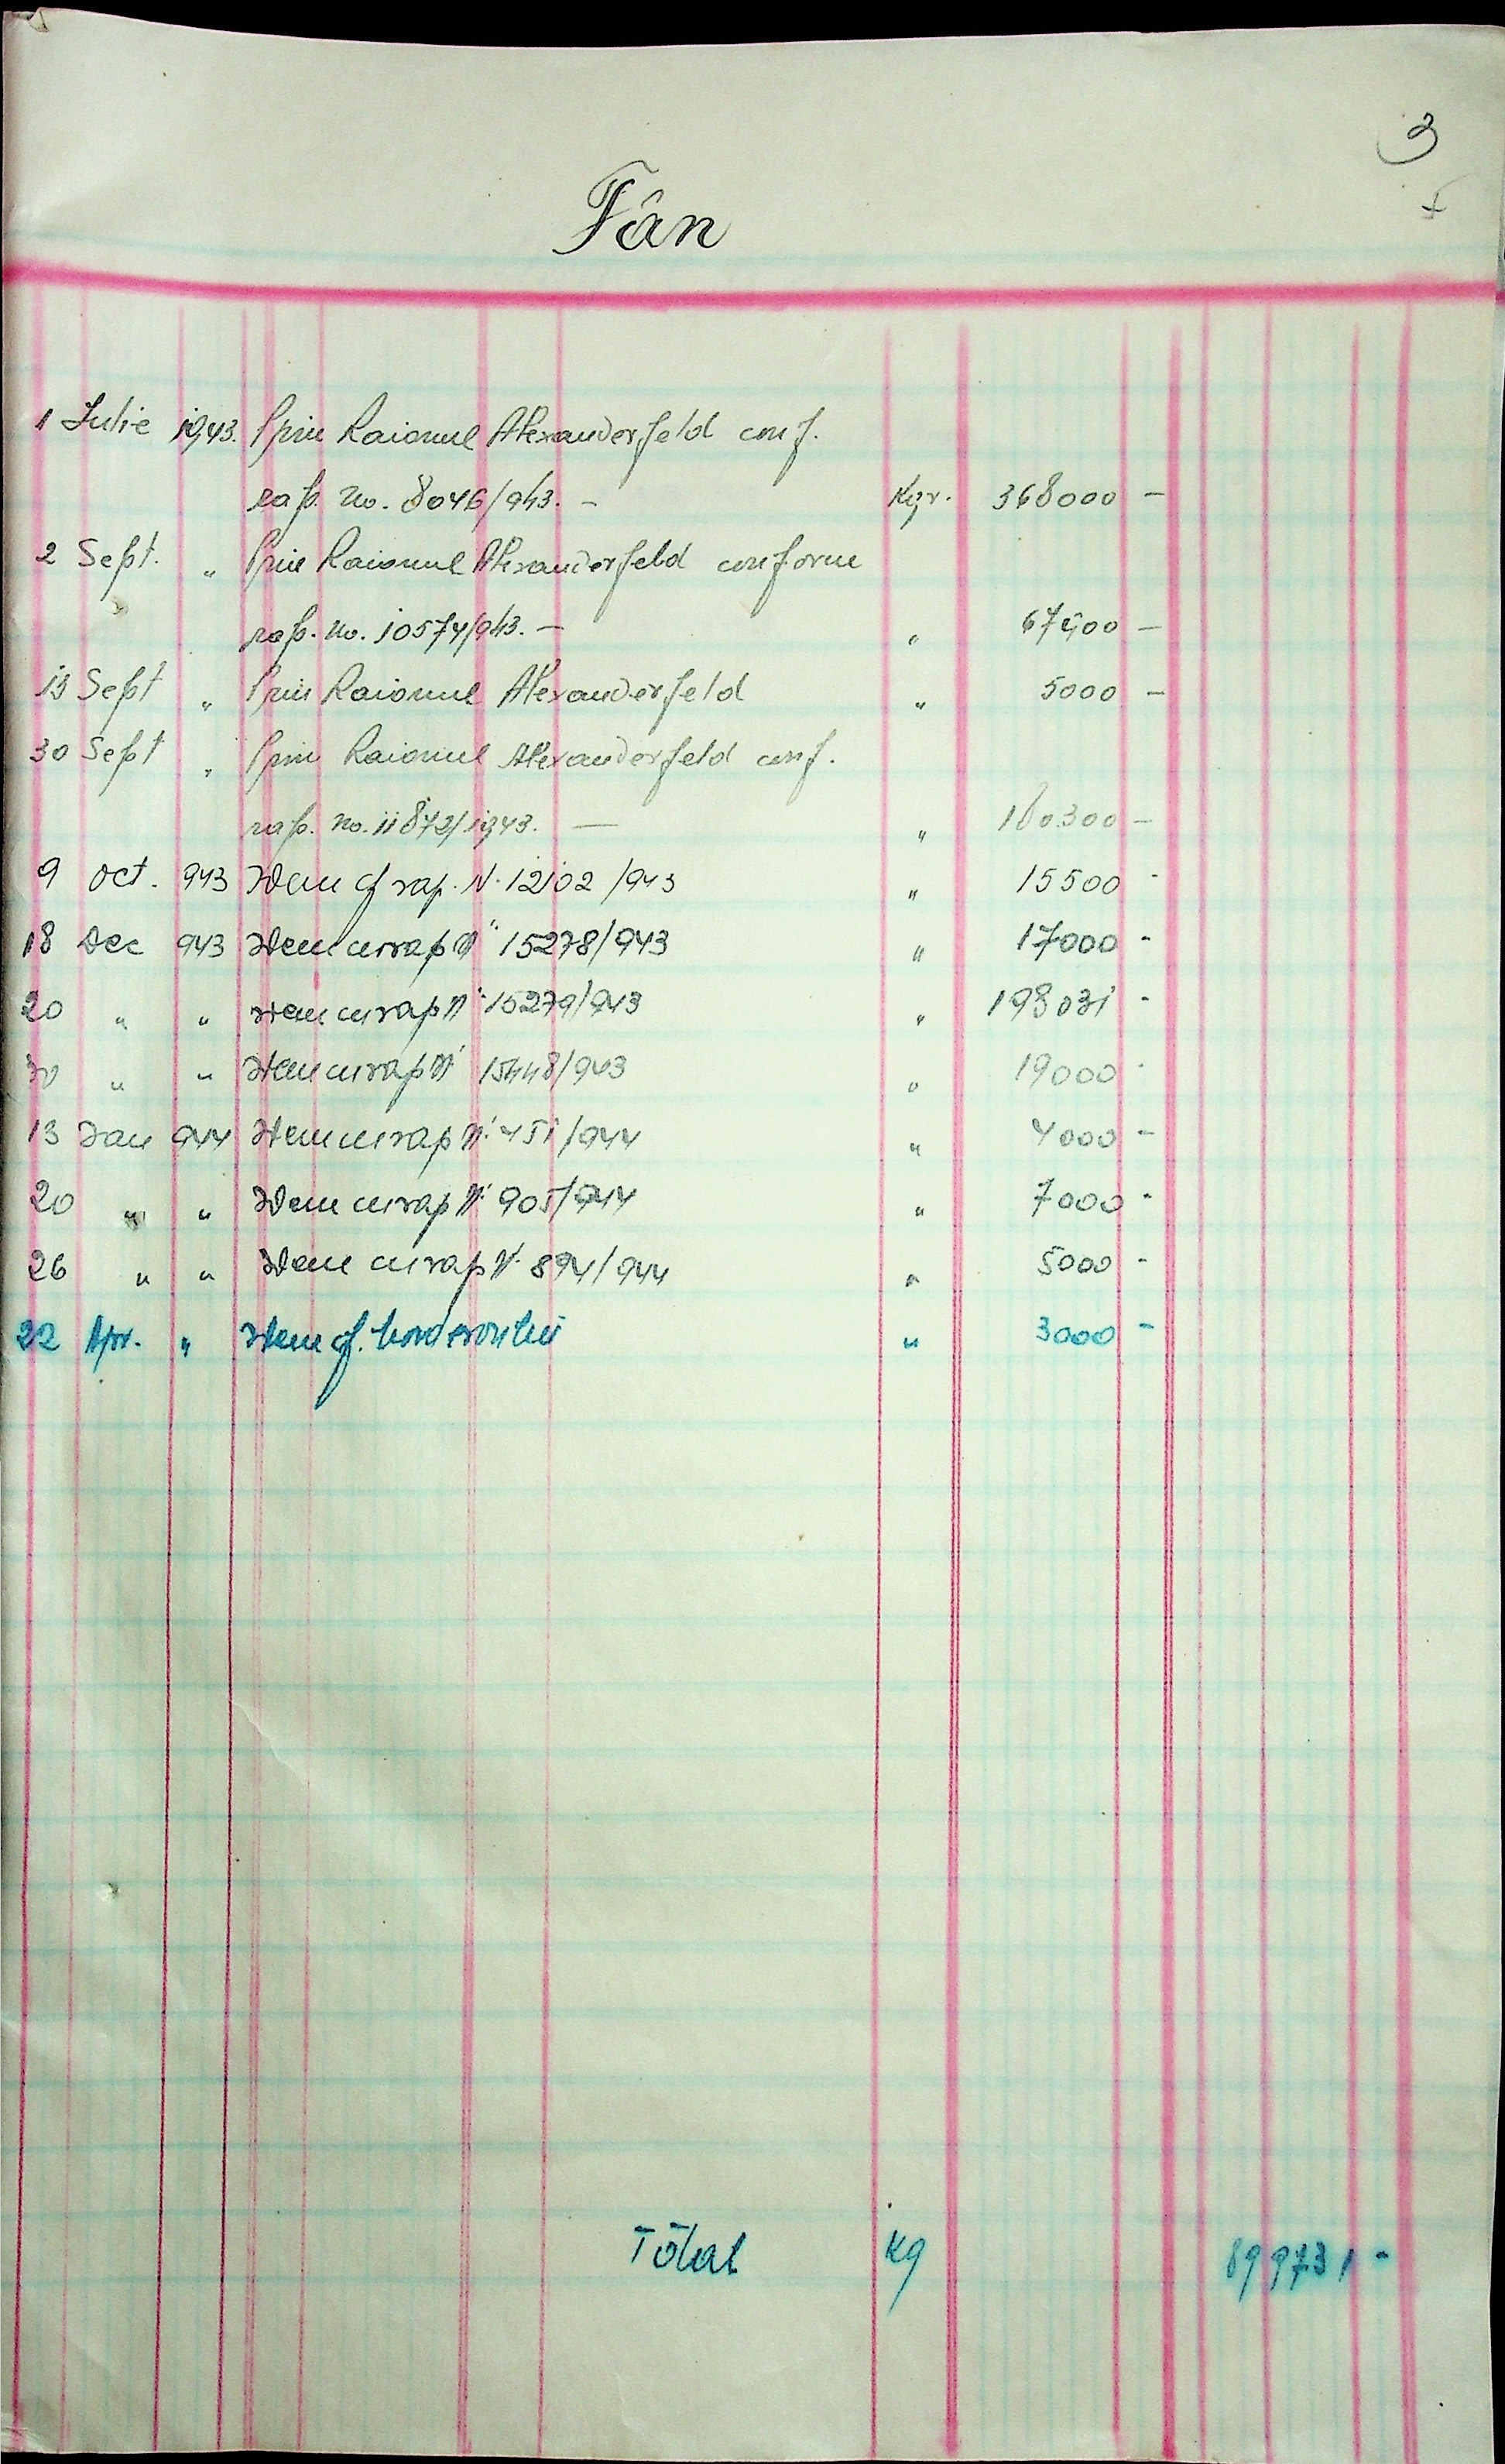 3
Fân
1 Iulie 1943. Prin Raionul Alexanderfeld conf.
rap. No. 8046/943. — Kgr. 368000 —
2 Sept. „ Prin Raionul Alexanderfeld conform
rap. No. 10574/943. — „ 67900 —
13 Sept „ Prin Raionul Alexanderfeld „ 5000 —
30 Sept „ Prin Raionul Alexanderfeld conf.
rap. No. 11872/1943. — „ 180.300 —
9 Oct. 943 Idem cf rap. N. 12102/943 „ 15500 -
18 Dec 943 Idem cu rap N. 15278/943 „ 17000 -
20 „ „ Idem cu rap N. 15279/943 „ 198031 -
30 „ „ Idem cu rap N. 15448/943 „ 19000 -
13 Ian 944 Idem cu rap N. 451/944 „ 4000 -
20 „ „ Idem cu rap N. 905/944 „ 7000 -
26 „ „ Idem cu rap N. 894/944 „ 5000 -
22 Apr. „ Idem cf. borderoului „ 3000 -
Total Kg 899731 -